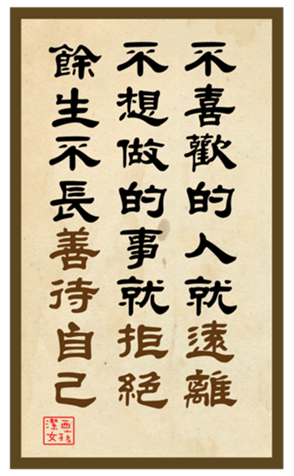 不喜歡的人就遠離
不想做的事就拒絕
餘生不長善待自己